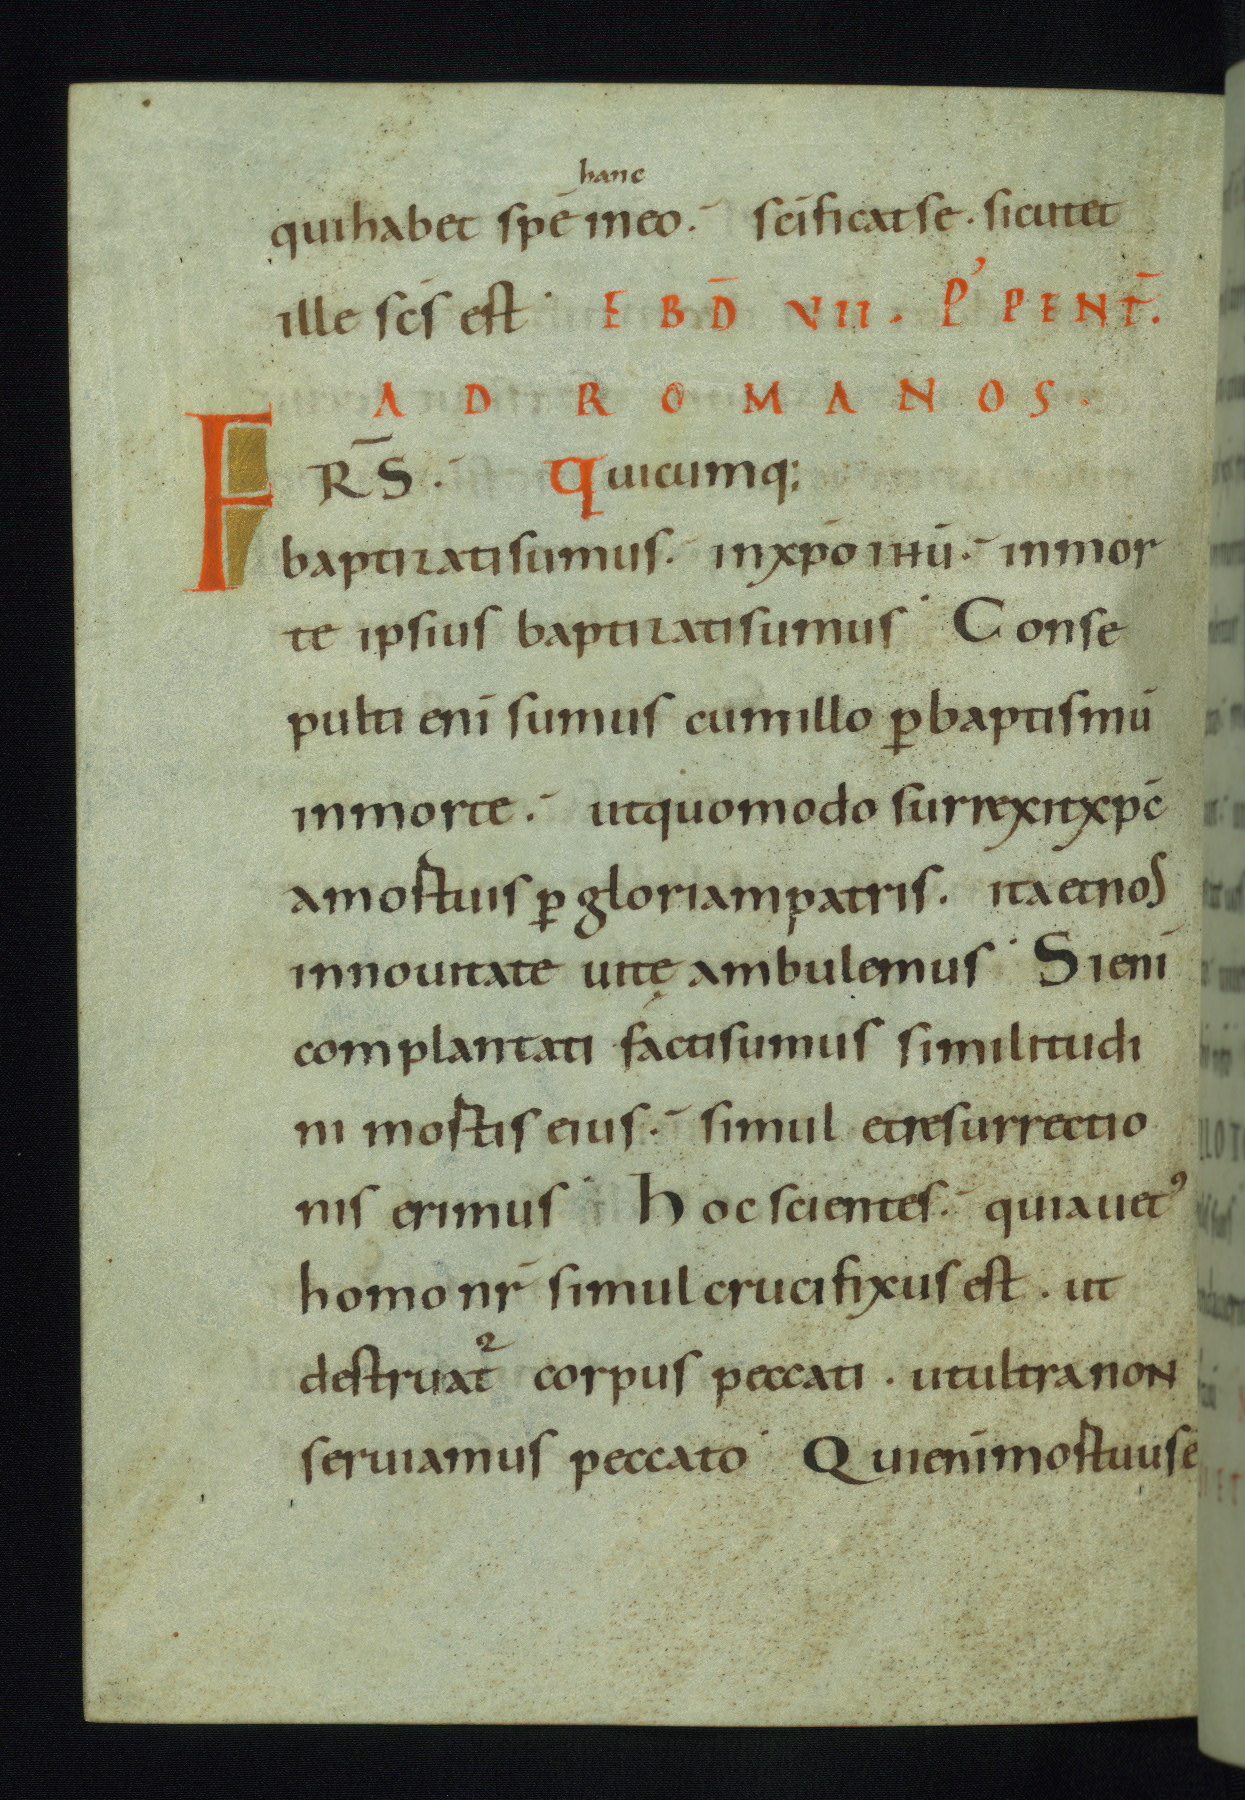 hanc
qui habet spē in eo. scīficat se. sicut et
ille scs̄ est EBD̄ VII. P' PENT̄.
AD ROMANOS.
FRS̄. Quicumq;
baptizati sumus. in xp̄o ihū. in mor
te ipsius baptizati sumus Conse
pulti enī sumus cum illo ꝑ baptismū
in morte. ut quomodo surrexit xp̄c
a mortuis ꝑ gloriam patris. ita et nos
in nouitate uitę ambulemus Si enī
complantati facti sumus similitudi
ni mortis eius. simul et resurrectio
nis erimus Hoc scientes. quia uetꝰ
homo nr̄ simul crucifixus est. ut
destruat᷑ corpus peccati. ut ultra non
seruiamus peccato Qui enī mortuus ē